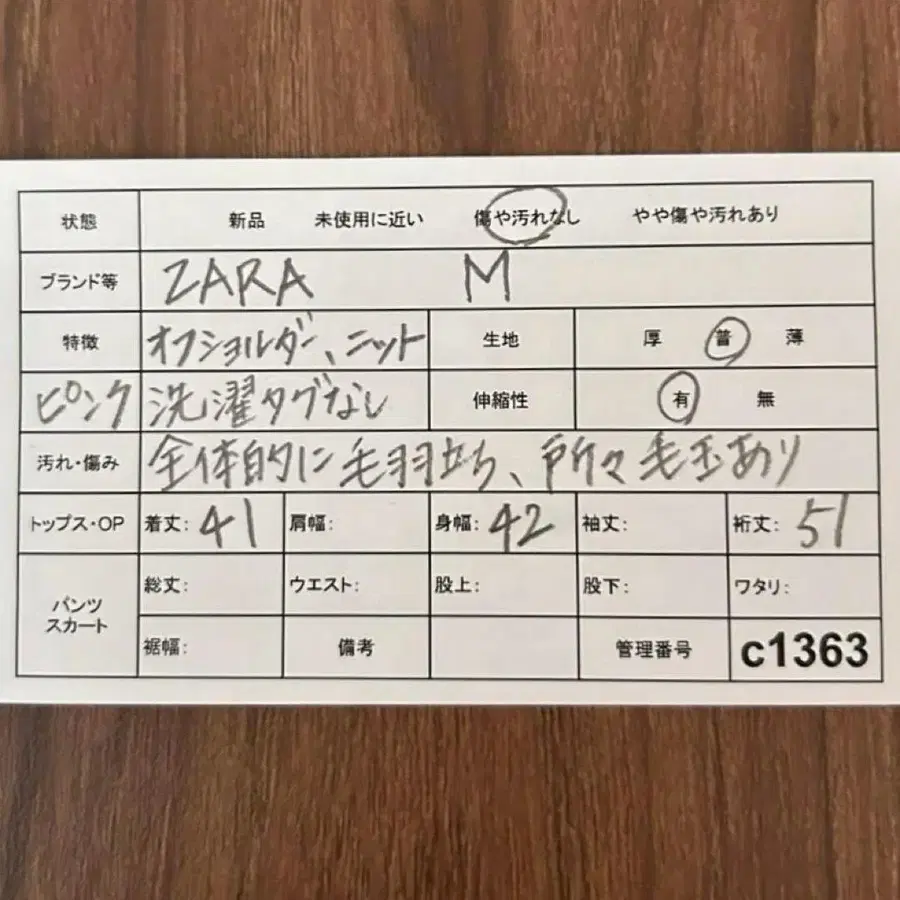 状態 新品 未使用に近い 傷や汚れなし やや傷や汚れあり
ブランド等 ZARA M
特徴 オフショルダー、ニット 生地 厚 普 薄
ピンク 洗濯タグなし 伸縮性 有 無
汚れ・傷み 全体的に毛羽立ち、所々毛玉あり
トップス・OP 着丈: 41 肩幅: 身幅: 42 袖丈: 裄丈: 51
パンツ スカート 総丈: ウエスト: 股上: 股下: ワタリ:
裾幅: 備考 管理番号 c1363